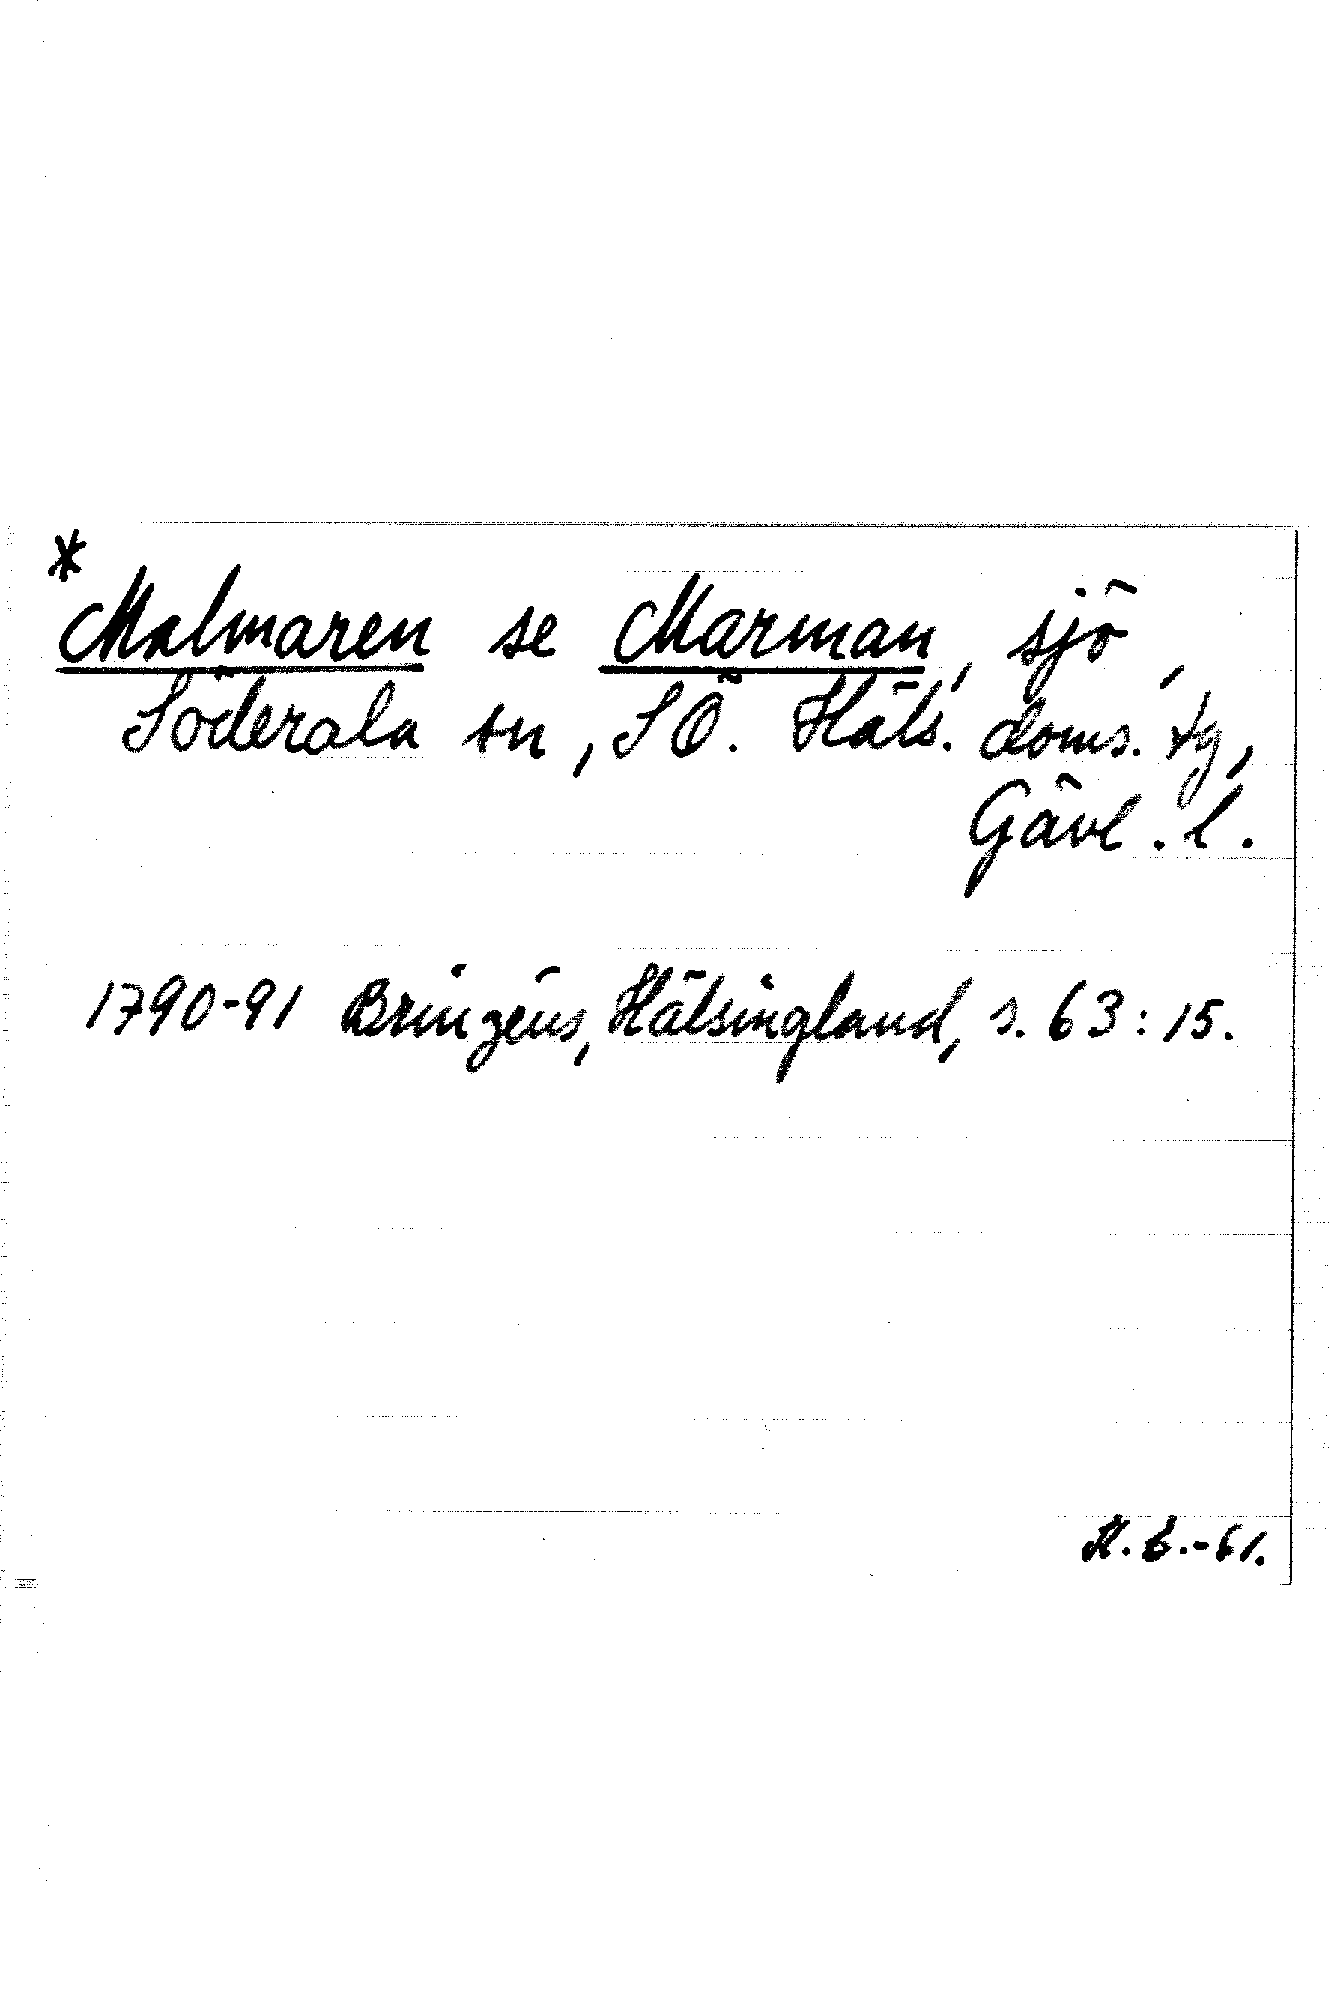 *
Malmaren se Marman, sjö,
Söderala sn, SÖ. Häls. doms. tg,
Gävl. l.
1790-91 Bringéus, Hälsingland, s. 63:15.
H.B.-61.